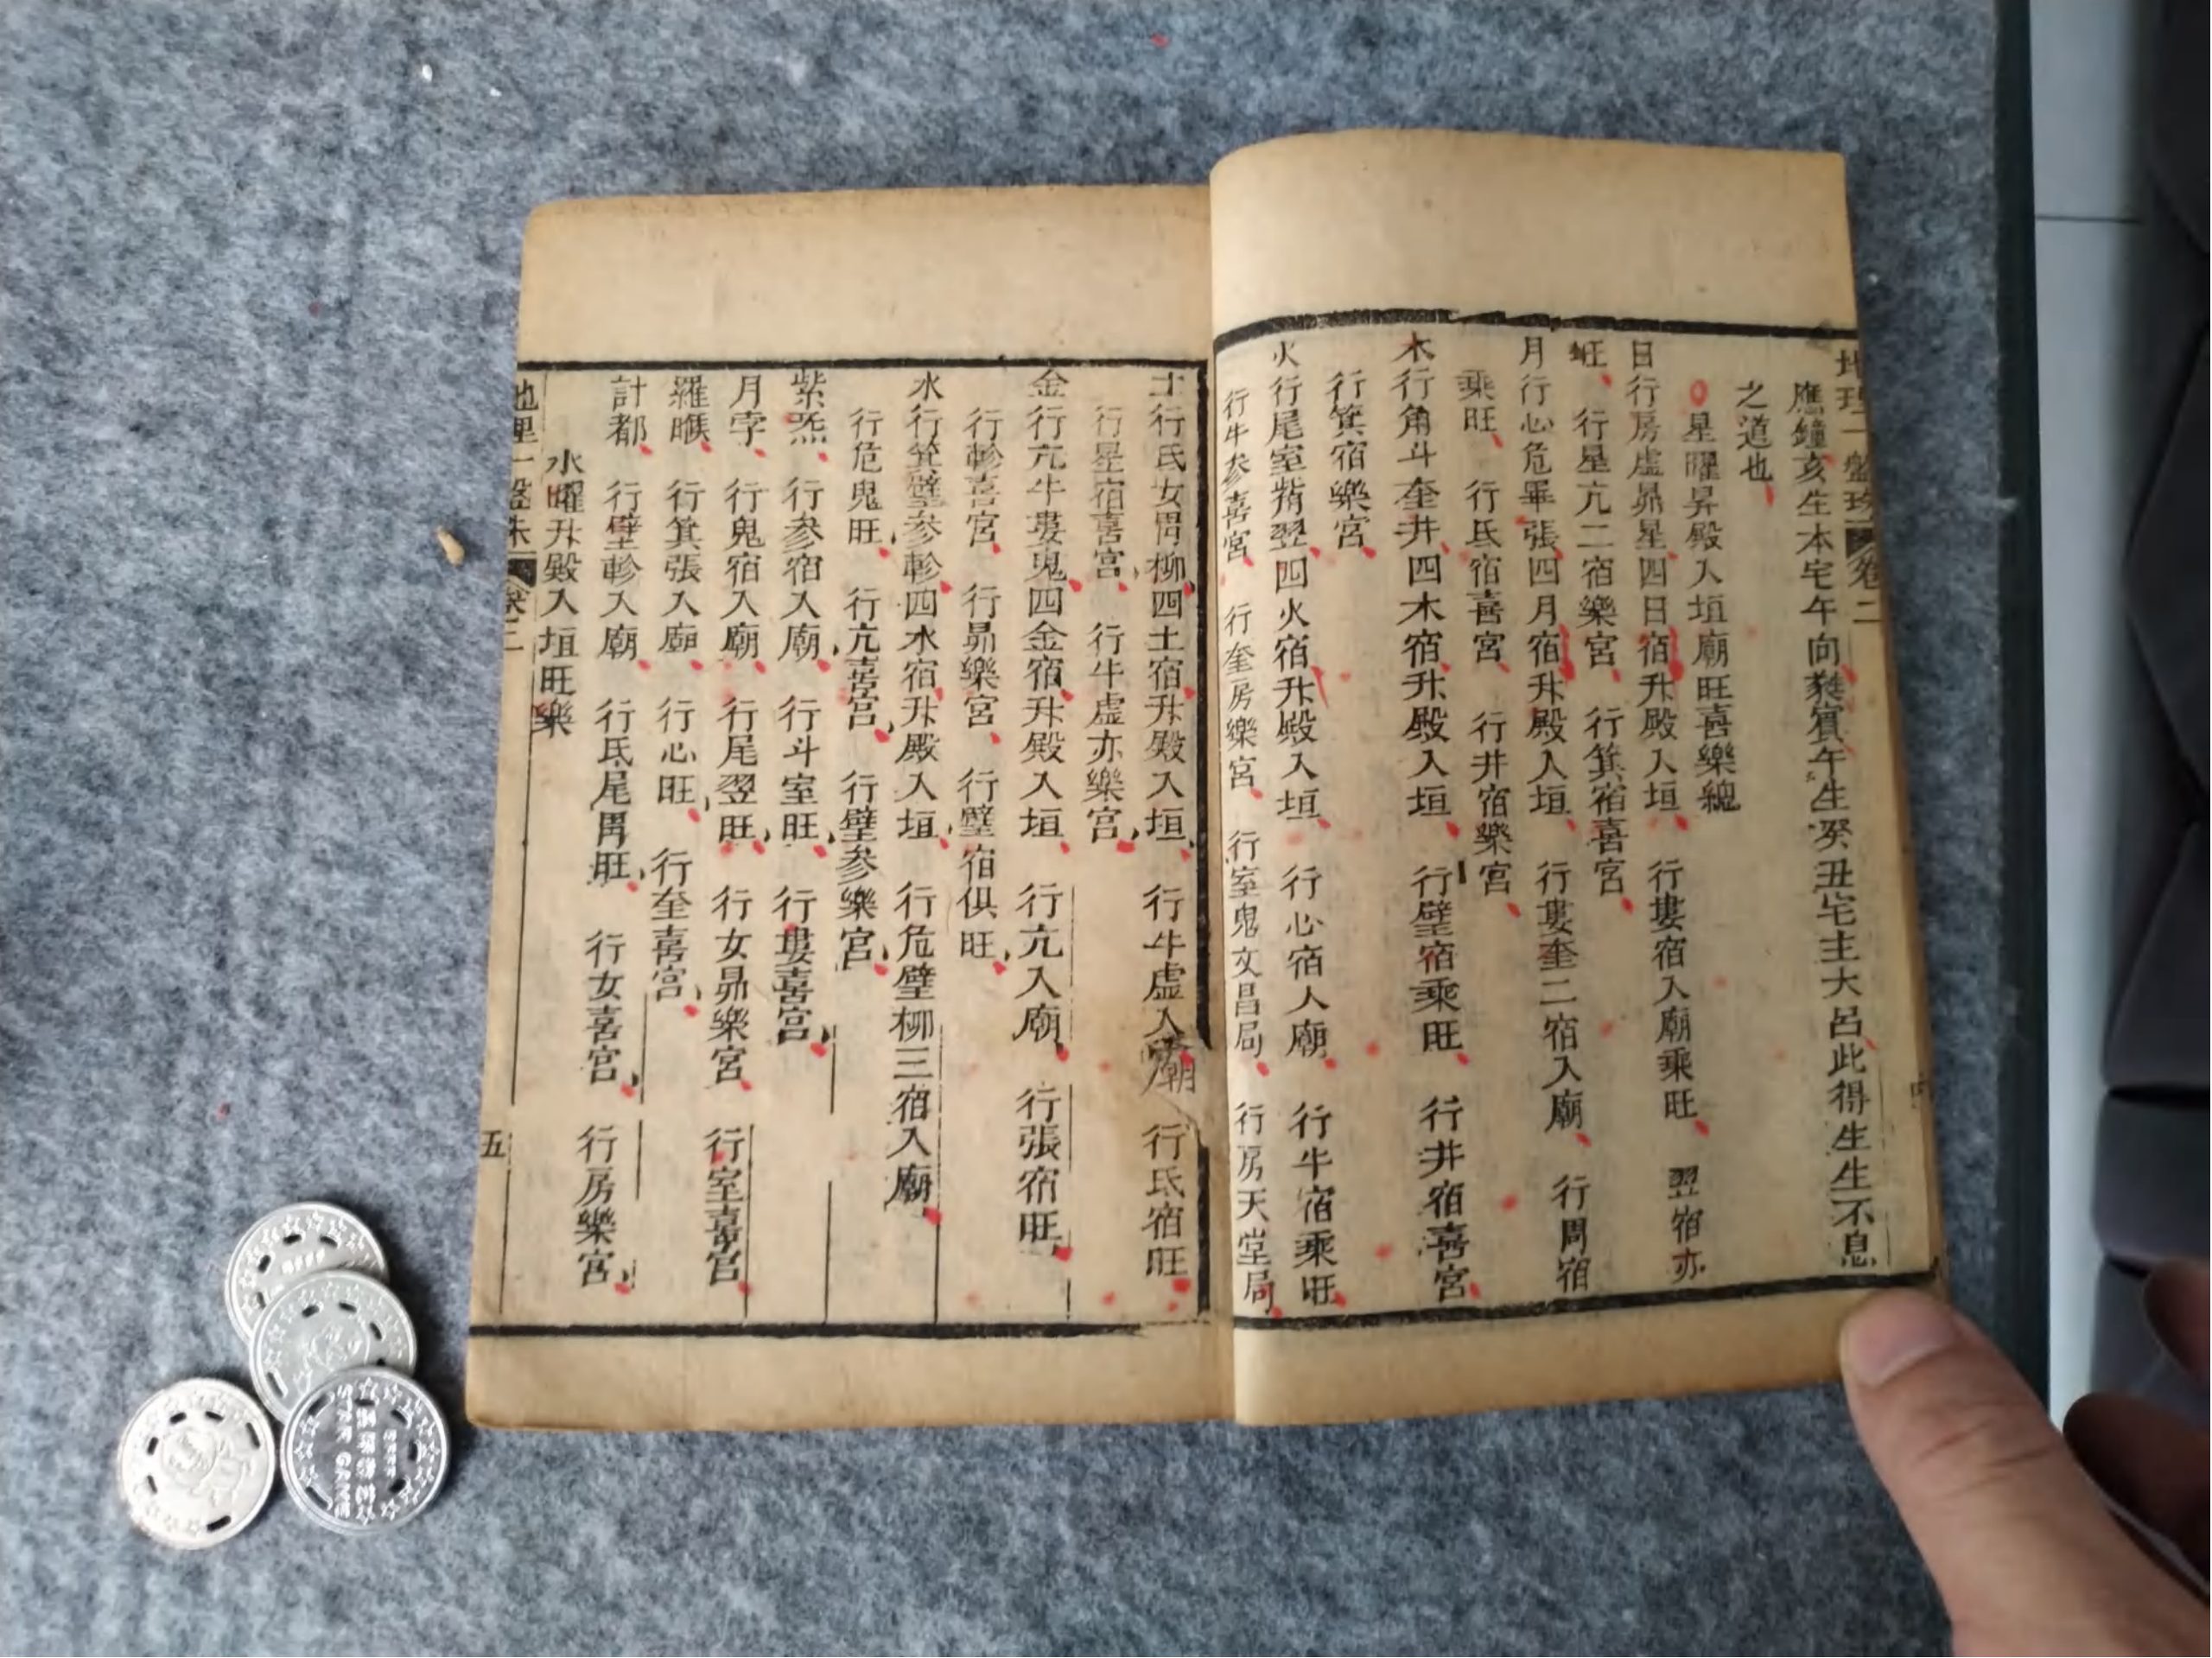 地理一盤珠 卷二
應鐘亥生本宅午向蕤賓午生癸丑宅主大呂此得生生不息
之道也
星曜昇殿入垣廟旺喜樂總
日行房虛昴星四日宿升殿入垣 行婁宿入廟乘旺 翌宿亦
旺 行星亢二宿樂宮 行箕宿喜宮
月行心危畢張四月宿升殿入垣 行婁奎二宿入廟 行胃宿
乘旺 行氐宿喜宮 行井宿樂宮
木行角斗奎井四木宿升殿入垣 行壁宿乘旺 行井宿喜宮
行箕宿樂宮
火行尾室觜翌四火宿升殿入垣 行心宿入廟 行牛宿乘旺
行牛参喜宮 行奎房樂宮 行室鬼文昌局 行房天堂局
土行氐女胃柳四土宿升殿入垣 行牛虛入廟 行氐宿旺
行星宿喜宮 行牛虛亦樂宮
金行亢牛婁鬼四金宿升殿入垣 行亢入廟 行張宿旺
行軫喜宮 行昴樂宮 行壁宿俱旺
水行箕壁参軫四水宿升殿入垣 行危壁柳三宿入廟
行危鬼旺 行亢喜宮 行壁参樂宮
紫炁 行参宿入廟 行斗室旺 行婁喜宮
月孛 行鬼宿入廟 行尾翌旺 行女昴樂宮 行室喜宮
羅㬋 行箕張入廟 行心旺 行奎喜宮
計都 行壁軫入廟 行氐尾胃旺 行女喜宮 行房樂宮
水曜升殿入垣旺樂
地理一盤珠 卷二 五
STAR GAME